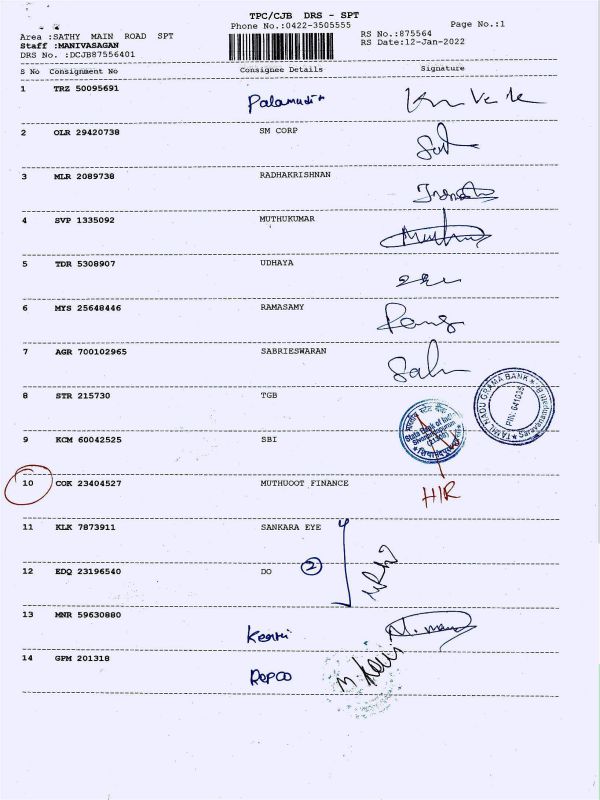 TPC/CJB DRS - SPT
Phone No.:0422-3505555
Page No.:1
Area :SATHY MAIN ROAD SPT
Staff :MANIVASAGAN
DRS No. :DCJB87556401
RS No.:875564
RS Date:12-Jan-2022
S No Consignment No Consignee Details Signature
1 TRZ 50095691
2 OLR 29420738 SM CORP
3 MLR 2089738 RADHAKRISHNAN
4 SVP 1335092 MUTHUKUMAR
5 TDR 5308907 UDHAYA
6 MYS 25648446 RAMASAMY
7 AGR 700102965 SABRIESWARAN
8 STR 215730 TGB
TAMIL NADU GRAMA BANK
PIN: 641035
9 KCM 60042525 SBI
State Bank of India
10 COK 23404527 MUTHUOOT FINANCE
HIR
11 KLK 7873911 SANKARA EYE
12 EDQ 23196540 DO 2
13 MNR 59630880
14 GPM 201318 Repco